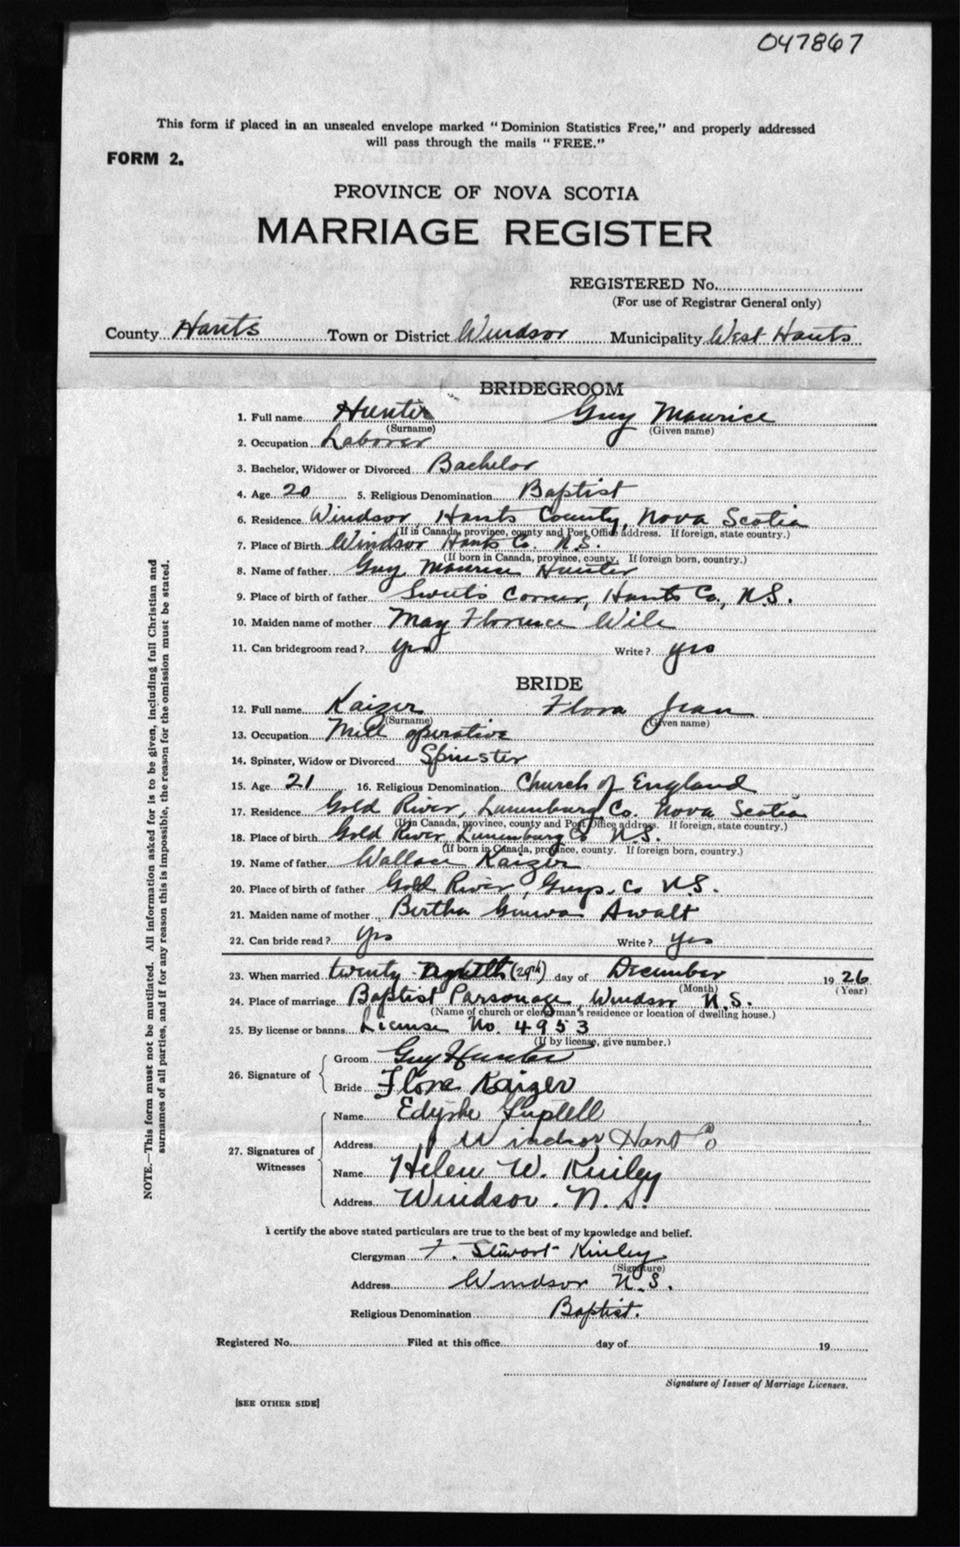 047867
This form if placed in an unsealed envelope marked "Dominion Statistics Free," and properly addressed
will pass through the mails "FREE."
FORM 2.
PROVINCE OF NOVA SCOTIA
MARRIAGE REGISTER
REGISTERED No.
(For use of Registrar General only)
County Hants Town or District Windsor Municipality West Hants
BRIDEGROOM
1. Full name Hunter Guy Maurice
(Surname) (Given name)
2. Occupation Laborer
3. Bachelor, Widower or Divorced Bachelor
4. Age 20 5. Religious Denomination Baptist
6. Residence Windsor, Hants County, Nova Scotia
(If in Canada, province, county and Post Office address. If foreign, state country.)
7. Place of Birth Windsor Hants Co. N.S.
(If born in Canada, province, county. If foreign born, country.)
8. Name of father Guy Maurice Hunter
9. Place of birth of father Sweets Corner, Hants Co., N.S.
10. Maiden name of mother May Florence Wile
11. Can bridegroom read? yes Write? yes
BRIDE
12. Full name Kaizer Flora Jean
(Surname) (Given name)
13. Occupation Mill operative
14. Spinster, Widow or Divorced Spinster
15. Age 21 16. Religious Denomination Church of England
17. Residence Gold River, Lunenburg Co. Nova Scotia
(If in Canada, province, county and Post Office address. If foreign, state country.)
18. Place of birth Gold River, Lunenburg Co N.S.
(If born in Canada, province, county. If foreign born, country.)
19. Name of father Wallace Kaizer
20. Place of birth of father Gold River, Guys. Co N.S.
21. Maiden name of mother Bertha Awalt
22. Can bride read? yes Write? yes
23. When married twenty (29th) day of December 1926
(Month) (Year)
24. Place of marriage Baptist Parsonage, Windsor N.S.
(Name of church or clergyman's residence or location of dwelling house.)
25. By license or banns License No. 4953
(If by license, give number.)
26. Signature of
Groom Guy Hunter
Bride Flora Kaizer
27. Signatures of Witnesses
Name
Address Windsor Hants Co
Name Helen W. Kinley
Address Windsor. N.S.
I certify the above stated particulars are true to the best of my knowledge and belief.
Clergyman F. Stewart Kinley
(Signature)
Address Windsor N.S.
Religious Denomination Baptist.
Registered No. Filed at this office day of 19
Signature of Issuer of Marriage Licenses.
[SEE OTHER SIDE]
NOTE.—This form must not be mutilated. All information asked for is to be given, including full Christian and
surnames of all parties, and if for any reason this is impossible, the reason for the omission must be stated.